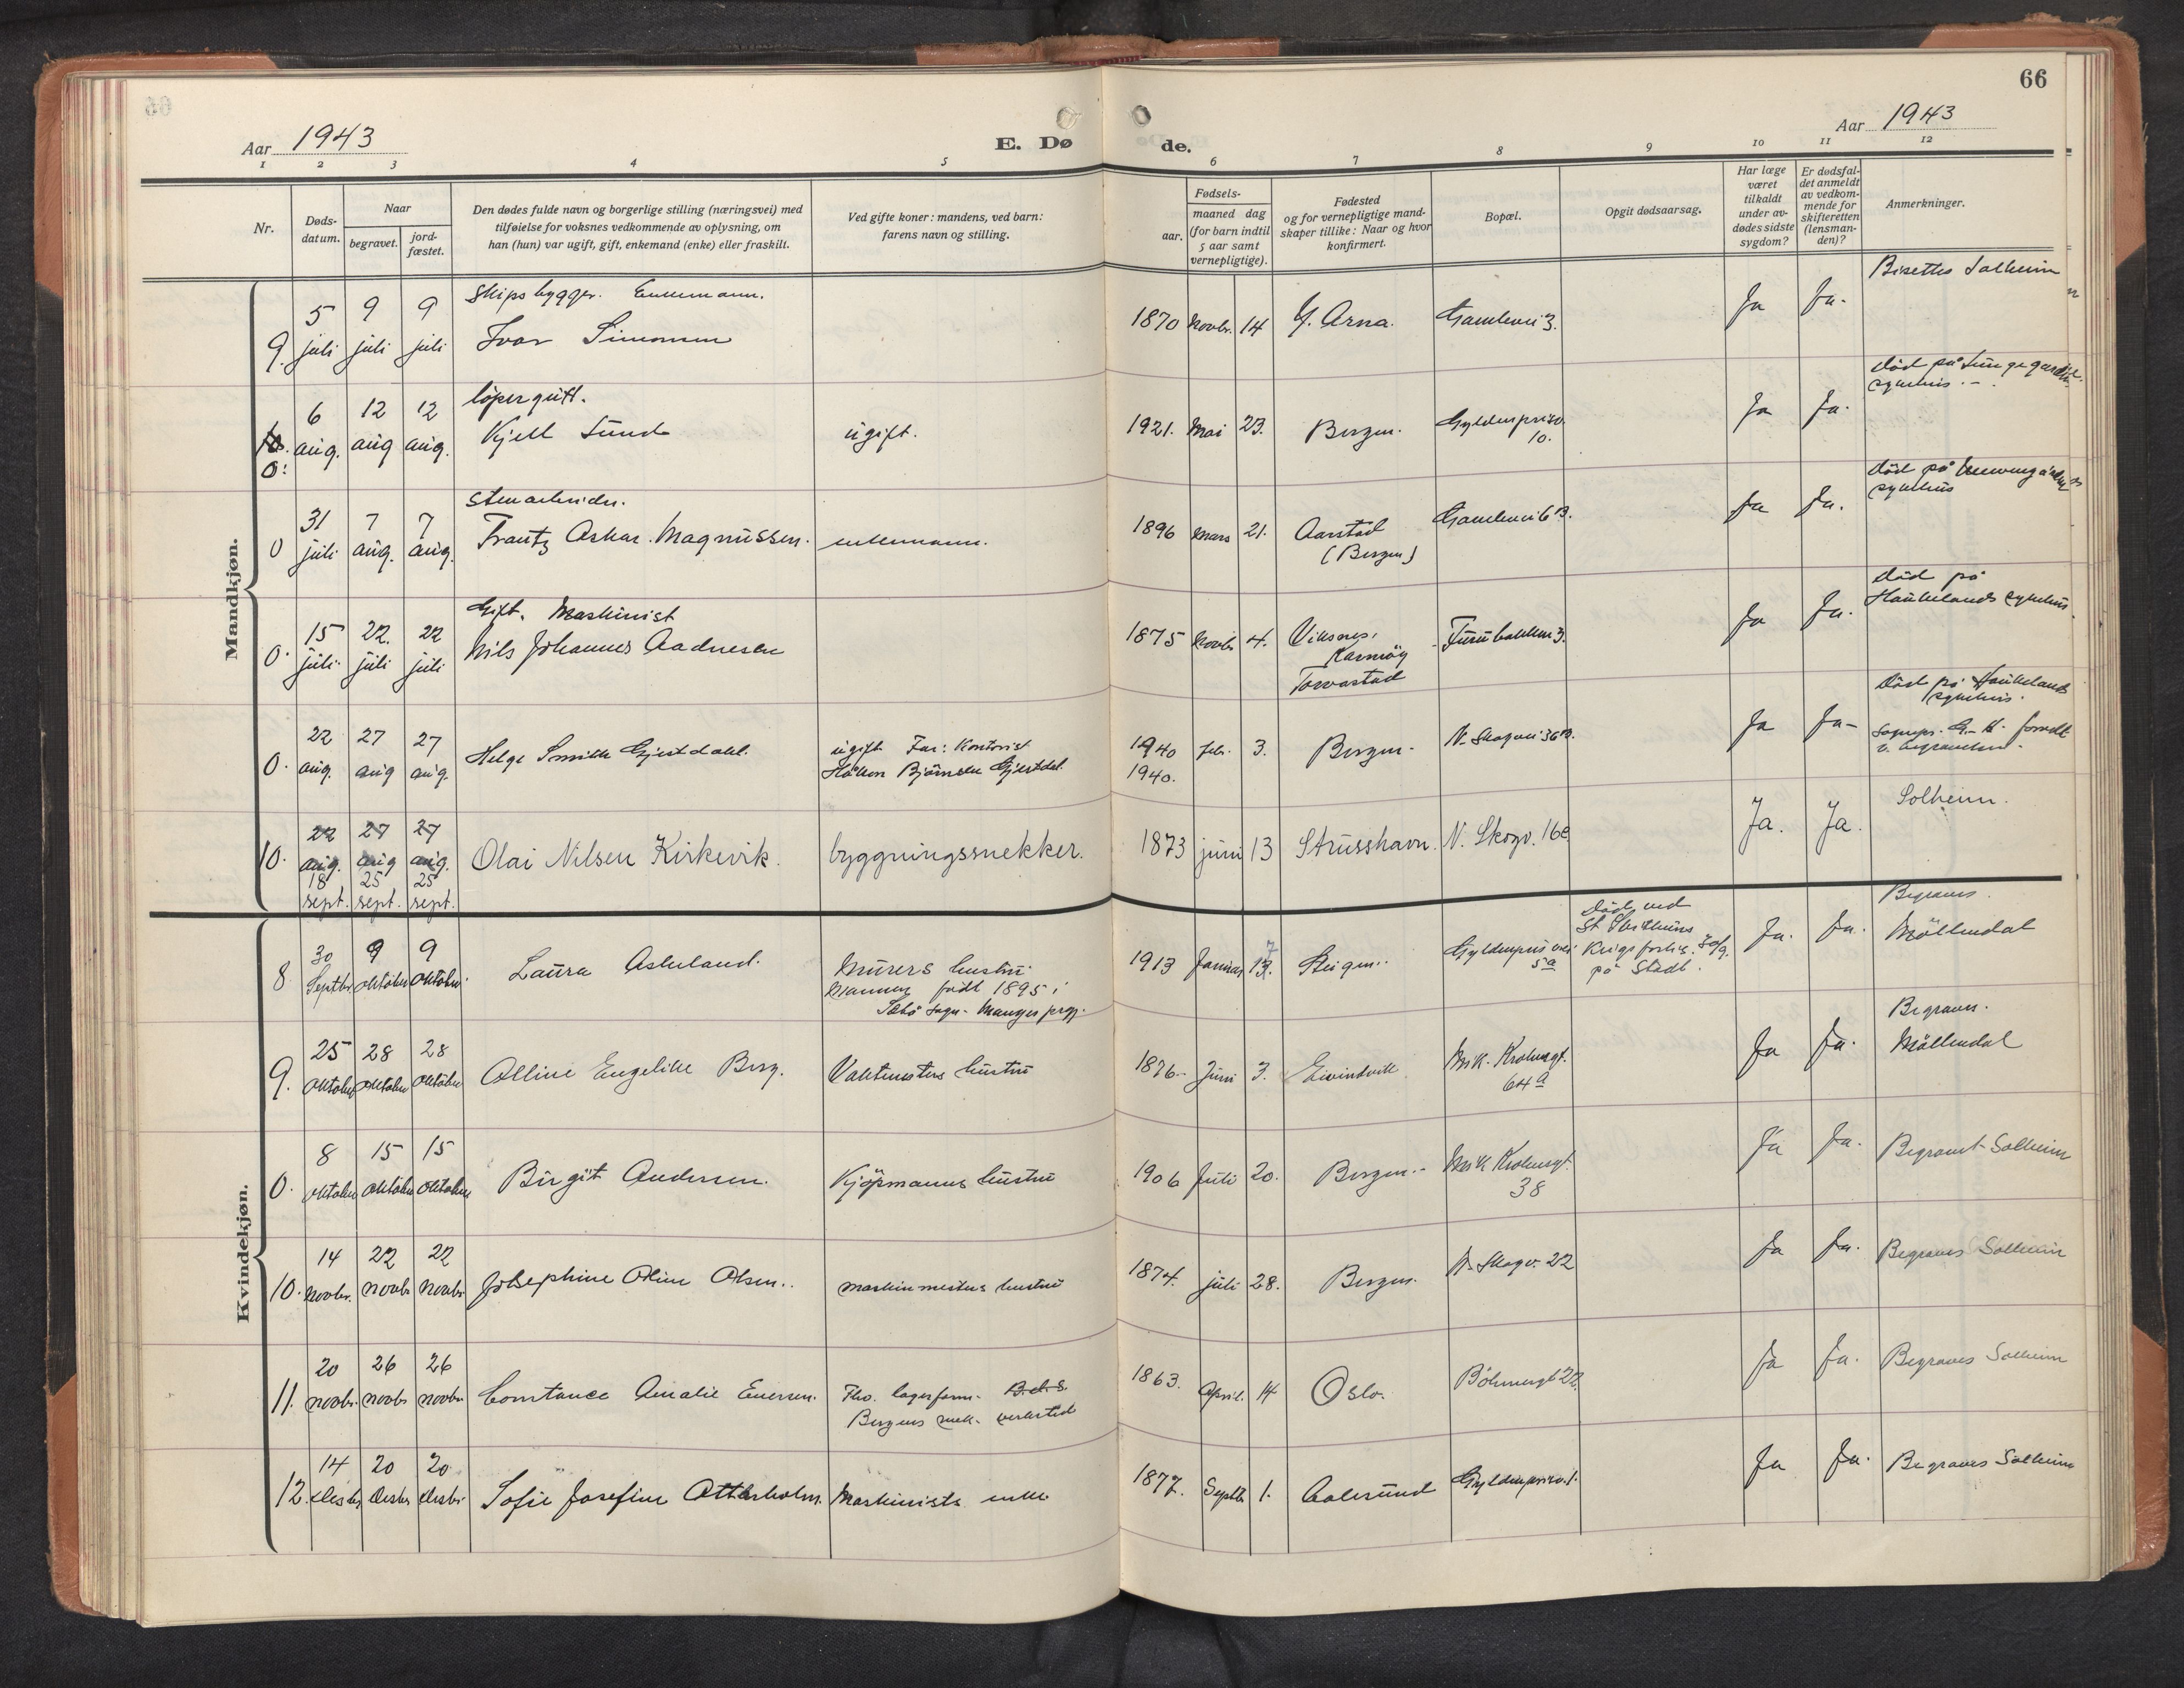 66
Aar 1943
E. Dø
de.
Aar 1943
1 2 3 4 5 6 7 8 9 10 11 12
Nr.
Døds-
datum.
Naar
begravet.
jord-
fæstet.
Den dødes fulde navn og borgerlige stilling (næringsvei) med
tilføielse for voksnes vedkommende av oplysning, om
han (hun) var ugift, gift, enkemand (enke) eller fraskilt.
Ved gifte koner: mandens, ved barn:
farens navn og stilling.
Fødsels-
aar.
maaned dag
(for barn indtil
5 aar samt
vernepligtige).
Fødested
og for vernepligtige mand-
skaper tillike: Naar og hvor
konfirmert.
Bopæl.
Opgit dødsaarsag.
Har læge
været
tilkaldt
under av-
dødes sidste
sygdom?
Er dødsfal-
det anmeldt
av vedkom-
mende for
skifteretten
(lensman-
den)?
Anmerkninger.
Mandkjøn.
Skipsbygger. Enkemann. Bisettes Solheim
5 9 9
9. juli juli juli Ivar Simonsen 1870 Novbr. 14 Y. Arna. Gamlevei 3. Ja Ja.
løpergutt. død på
sykehus.
6 12 12
aug. aug aug. Kjell Sund ugift. 1921. Mai 23. Bergen. Gyldenprisv. 10. Ja Ja.
0:
Stenarbeider. død på
sykehus
31 7 7
0 juli aug. aug. Frantz Oskar Magnussen. enkemann. 1896 Mars 21. Aarstad Gamlevei 6 B. Ja Ja.
(Bergen)
Gift. Maskinist død på
Haukelands sykehus.
15 22. 22
0. juli. juli juli Nils Johannes Aadnesen 1875 Novbr 4. Viksnes, Furubakken 3. Ja Ja.
Karmøy
Torvastad
død på Haukelands
sykehus.
22 27 27
0. aug. aug aug. Helge Smith Gjestdahl. ugift Far: Kontorist 1940 febr. 3. Bergen. N. Skogvei 36 B. Ja Ja
Håkon Bjørnsen Gjestdal. 1940.
Solheim.
22 27 27
10. aug. aug aug. Olai Nilsen Kirkevik. byggningssnekker. 1873 juni 13 Strusshavn. N. Skogv. 16c Ja. Ja.
18 25 25
sept. sept. sept.
Kvindekjøn.
død ved
Begraves.
30 9 9
8 Septbr. oktober oktober. Laura Askeland. Murers hustru 1913 Januar 13. 7 Gyldenprisvei 5a Krigsforlis 30/9. Ja. Ja. Møllendal
på Stadt.
Mannen født 1895 i
Sæbø sogn. Manger prgj.
Begraves.
25 28 28
9. oktober oktober oktober Olline Engelike Berg. Vaktmesters hustru 1876. Juni 3. Eivindvik Mik. Krohnsgt. 64a Ja Ja. Møllendal
8 15 15
0. oktober oktober oktober Birgit Andersen. Kjøpmanns hustru 1906 Juli 20. Bergen. Mik Krohnsgt. 38 Ja Ja. Begravet Solheim
14 22 22
10. Novbr. Novbr Novbr. Josephine Oline Olsen. maskinmesters hustru 1874. juli 28. Bergen. N. Skogv. 22 Ja Ja. Begraves Solheim
20 26 26
11. novbr. novbr novbr Constance Amalie Evensen. Fho. lagerform. B.d.S. 1863. April. 14 Oslo. Bøhmergt 22. Ja Ja. Begraves Solheim
Bergens mek. verksted
14 20 20
12. Desbr. Desbr Desbr. Sofie Josefine Otterholm. Maskinists enke 1877. Septbr 1. Aalesund Gyldenprisv. 1. Ja Ja. Begraves Solheim